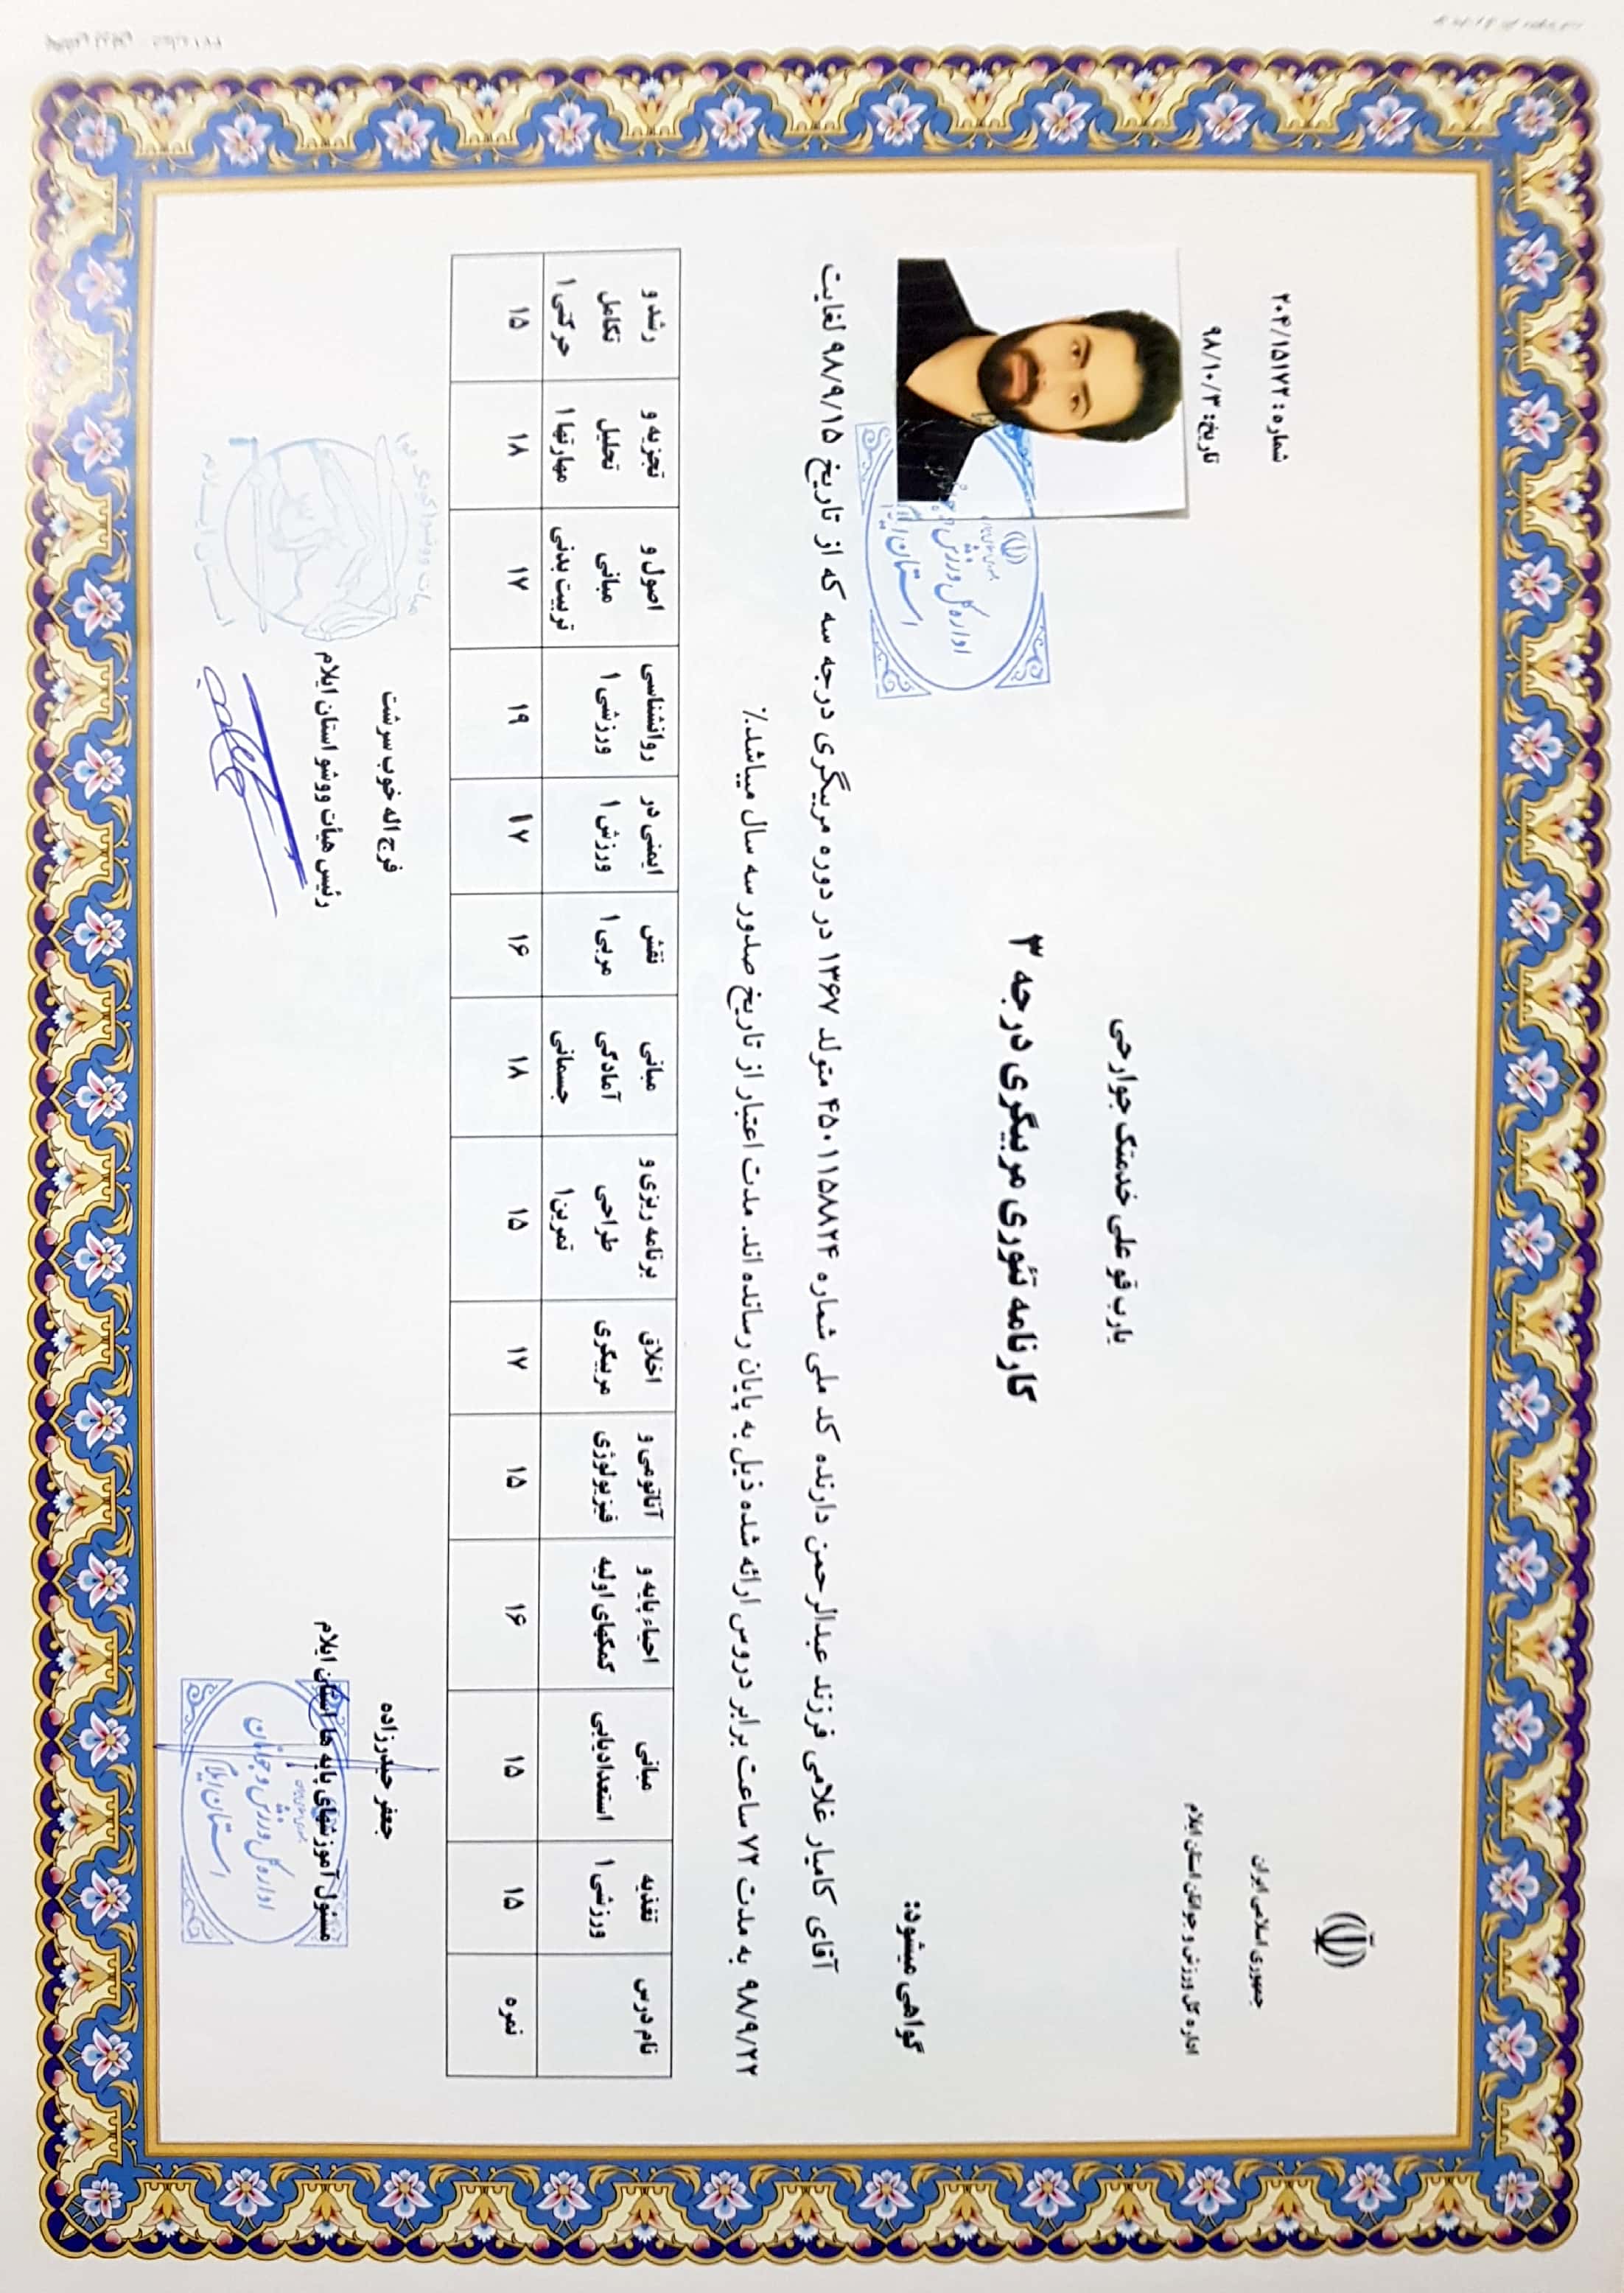 جمهوری اسلامی ایران
اداره کل ورزش و جوانان استان ایلام
شماره: ۲۰۴/۱۵۱۷۲
تاریخ: ۹۸/۱۰/۳
یارب قو علی خدمتک جوارحی
کارنامه تئوری مربیگری درجه ۳
گواهی میشود:
آقای کامیار غلامی فرزند عبدالرحمن دارنده کد ملی شماره ۴۵۰۱۱۵۸۸۲۴ متولد ۱۳۶۷ در دوره مربیگری درجه سه که از تاریخ ۹۸/۹/۱۵ لغایت
۹۸/۹/۲۲ به مدت ۷۲ ساعت برابر دروس ارائه شده ذیل به پایان رسانده اند. مدت اعتبار از تاریخ صدور سه سال میباشد.٪
نام درس تغذیه مبانی احیاء پایه و آناتومی و اخلاق برنامه ریزی و مبانی نقش ایمنی در روانشناسی اصول و تجزیه و رشد و
ورزشی ۱ استعدادیابی کمکهای اولیه فیزیولوژی مربیگری طراحی آمادگی مربی ۱ ورزش ۱ ورزشی ۱ مبانی تحلیل تکامل
تمرین۱ جسمانی تربیت بدنی مهارتها ۱ حرکتی ۱
نمره ۱۵ ۱۵ ۱۶ ۱۵ ۱۷ ۱۵ ۱۸ ۱۶ ۱۷ ۱۹ ۱۷ ۱۸ ۱۵
جعفر حیدرزاده
مسئول آموزشهای پایه ها استان ایلام
فرج اله خوب سرشت
رئیس هیأت ووشو استان ایلام
اداره کل ورزش و جوانان
استان ایلام
اداره کل ورزش و جوانان
استان ایلام